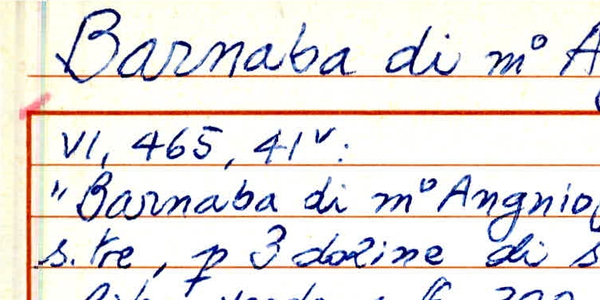 Barnaba di mº A
VI, 465, 41ᵛ:
"Barnaba di mº Angnio
s. tre, p 3 dozine di s